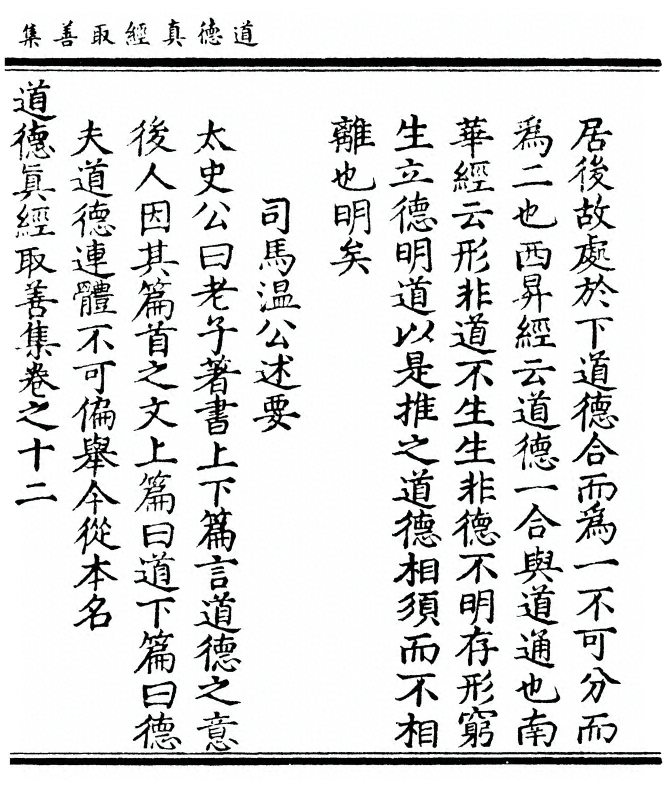 道德真經取善集
居後故處於下道德合而爲一不可分而
爲二也西昇經云道德一合與道通也南
華經云形非道不生生非德不明存形窮
生立德明道以是推之道德相須而不相
離也明矣
司馬温公述要
太史公曰老子著書上下篇言道德之意
後人因其篇首之文上篇曰道下篇曰德
夫道德連體不可偏舉今從本名
道德眞經取善集卷之十二